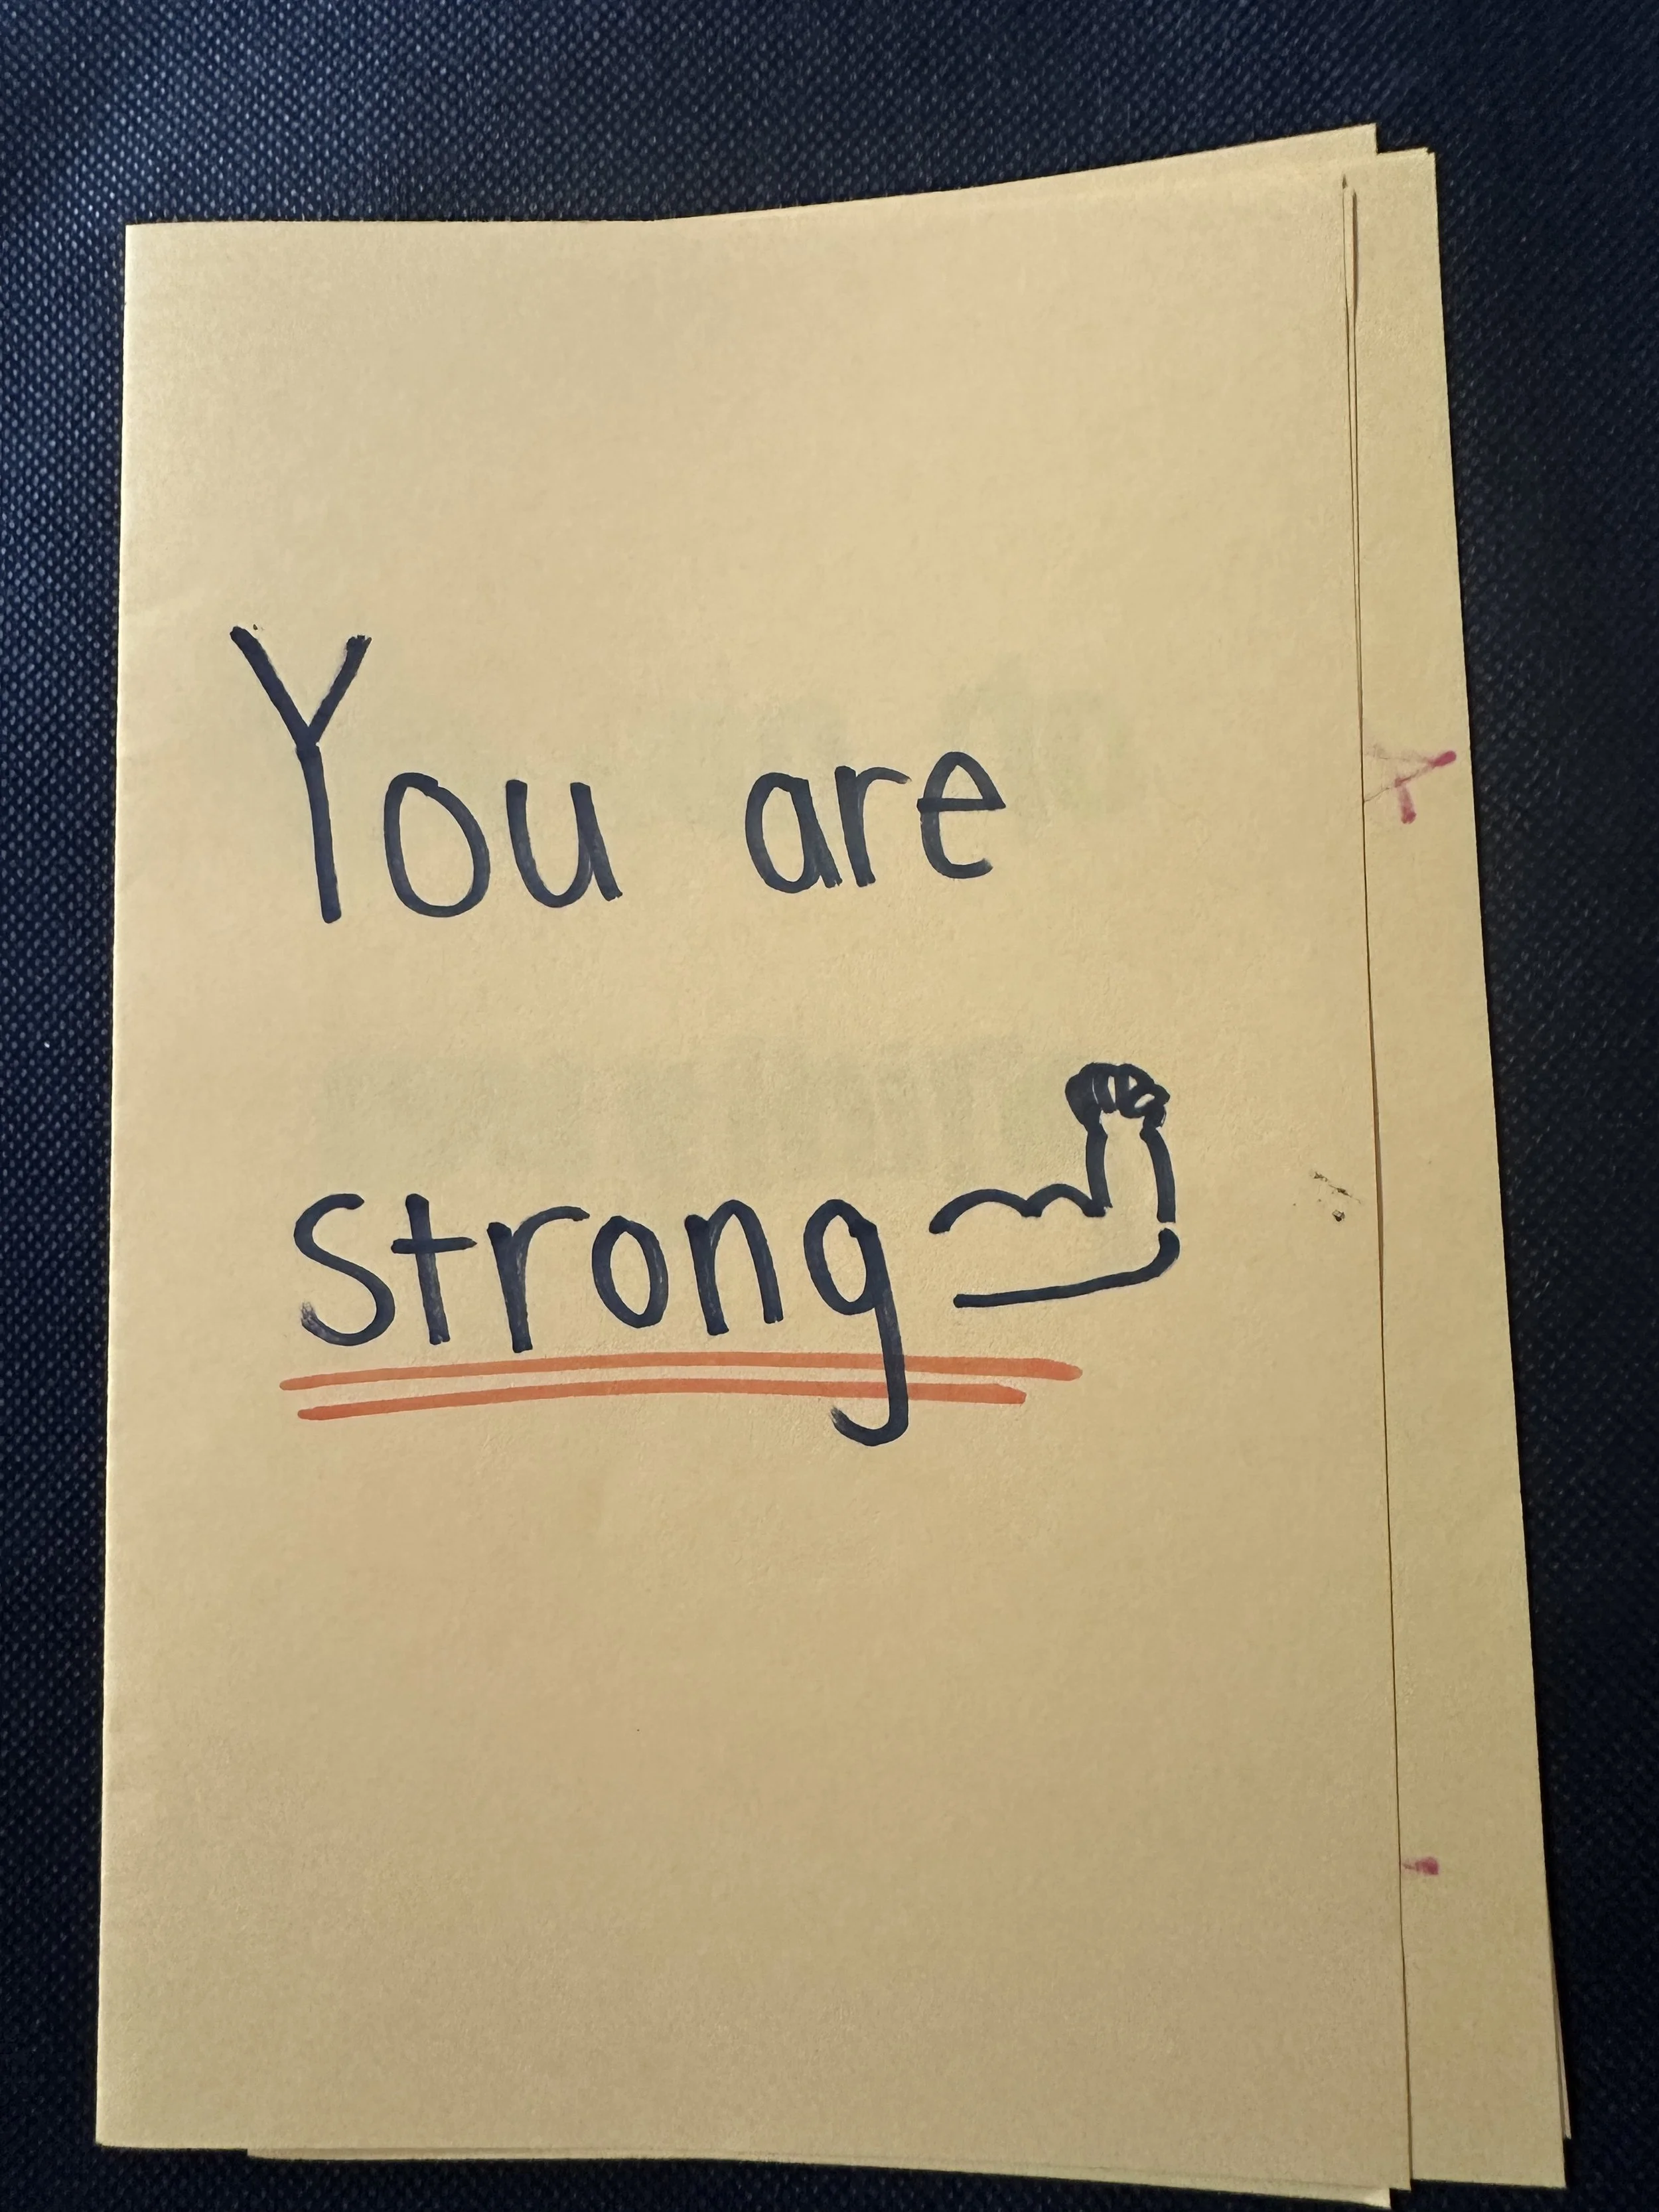 You are
strong